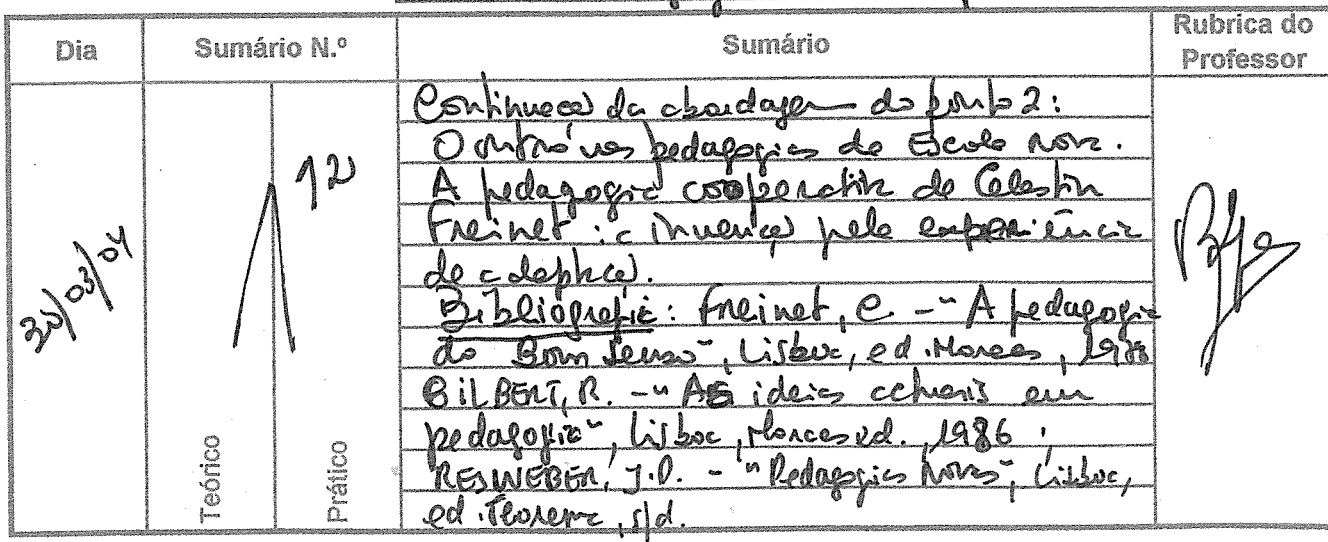 Dia Sumário N.º Sumário Rubrica do Professor
30/03/04
12
Teórico
Prático
Continuação da abordagem do ponto 2:
O outro nas pedagogias da Escola Nova.
A pedagogia cooperativa de Celestin
Freinet: a invenção pela experiência
de
Bibliografia: Freinet, C. - "A pedagogia
do Bom Senso", Lisboa, ed. Moraes,
GILBERT, R. - "AS ideias actuais em
pedagogia", Lisboa, Moraes ed., 1986;
RESWEBER, J.P. - "Pedagogias Novas", Lisboa,
ed. Teorema, s/d.